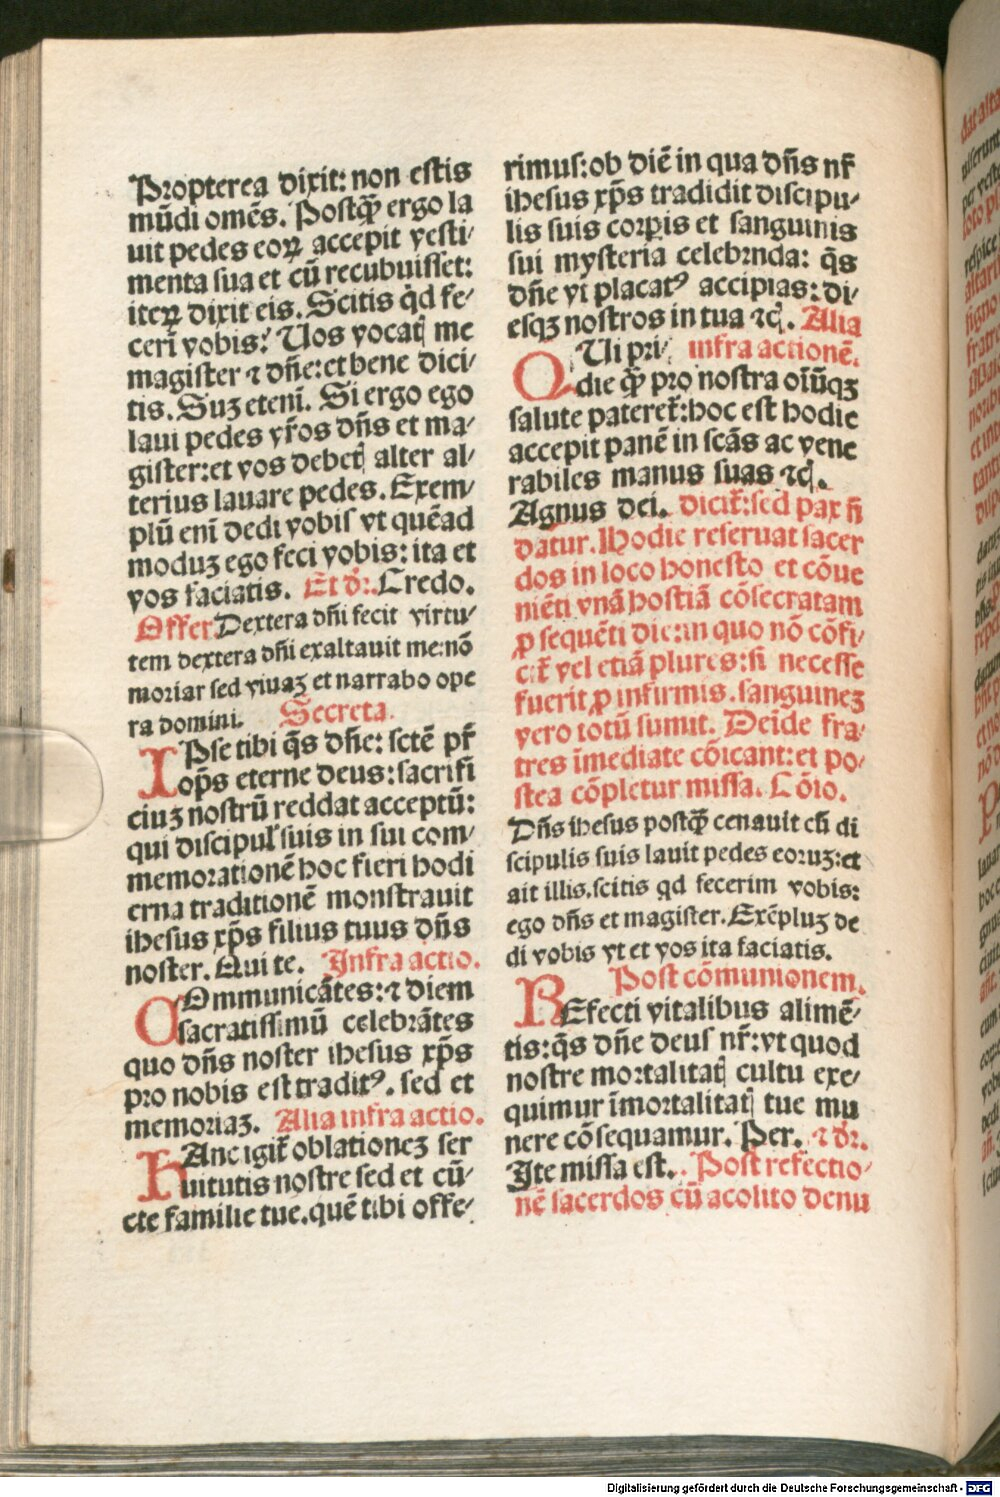 Propterea dixit: non estis
mūdi omēs. Postꝙ̄ ergo la
uit pedes eoꝝ accepit vesti-
menta sua et cū recubuiſſet:
iteꝝ dixit eis. Scitis q̇d fe-
ceri vobis? Uos vocat me
magister ⁊ dn̄e: et bene dici-
tis. Suꝫ eteni. Si ergo ego
laui pedes vr̄os dn̄s et ma-
gister: et vos debet alter al-
terius lauare pedes. Exem-
plū eni dedi vobiſ vt quēad
moduꝫ ego feci vobis: ita et
vos faciatis. Et dr̄. Credo.
Offer Dextera dn̄i fecit virtu-
tem dextera dn̄i exaltauit me: nō
moriar sed viuaꝫ et narrabo ope
ra domini. Secreta.
IPse tibi q̄s dn̄e: sctē pr̄
op̄s eterne deus: sacrifi
ciuꝫ nostrū reddat acceptū:
qui discipul̛ suis in sui com-
memorationē hoc fieri hodi
erna traditionē monstrauit
ihesus xp̄s filius tuus dn̄s
noster. Qui te. Infra actio.
COmmunicātes: ⁊ diem
sacratiſſimū celebrātes
quo dn̄s noster ihesus xp̄s
pro nobis est traditꝰ. sed et
memoriaꝫ. Alia infra actio.
HAnc igit̄ oblationeꝫ ser
uitutis nostre sed et cū-
cte familie tue. quē tibi offe-
rimuſ: ob diē in qua dn̄s nr̄
ihesus xp̄s tradidit discipu-
lis suis corꝑis et sanguinis
sui mysteria celebrnda: q̄s
dn̄e vt placatꝰ accipias: di-
esqꝫ nostros in tua ⁊c. Alia
QUi pri- infra actionē.
die ꝙ̄ pro nostra oīūqꝫ
salute pateret̄: hoc est hodie
accepit panē in scās ac vene
rabiles manus suas ⁊c.
Agnus dei. dicit̄: sed pax n̄
datur. Hodie reseruat sacer
dos in loco honesto et cōue
niēti vnā hostiā cōsecratam
ꝓ sequēti die: in quo nō cōfi-
cit̄ vel etiā plures: si necesse
fuerit ꝓ infirmis. sanguineꝫ
vero totū sumit. Deīde fra-
tres īmediate cōicant: et po-
stea cōpletur miſſa. Cōio.
Dn̄s ihesus postꝙ̄ cenauit cū di
scipulis suis lauit pedes eoruꝫ: et
ait illis. scitis qd fecerim vobis:
ego dn̄s et magister. Exēpluꝫ de
di vobis vt et vos ita faciatis.
Post cōmunionem.
REfecti vitalibus alimē-
tis: q̄s dn̄e deuſ nr̄: vt quod
nostre mortalitat cultu exe-
quimur īmortalitat tue mu
nere cōsequamur. Per. ⁊ dr̄.
Ite miſſa est. Post refectio-
nē sacerdos cū acolito denu
Digitalisierung gefördert durch die Deutsche Forschungsgemeinschaft - DFG